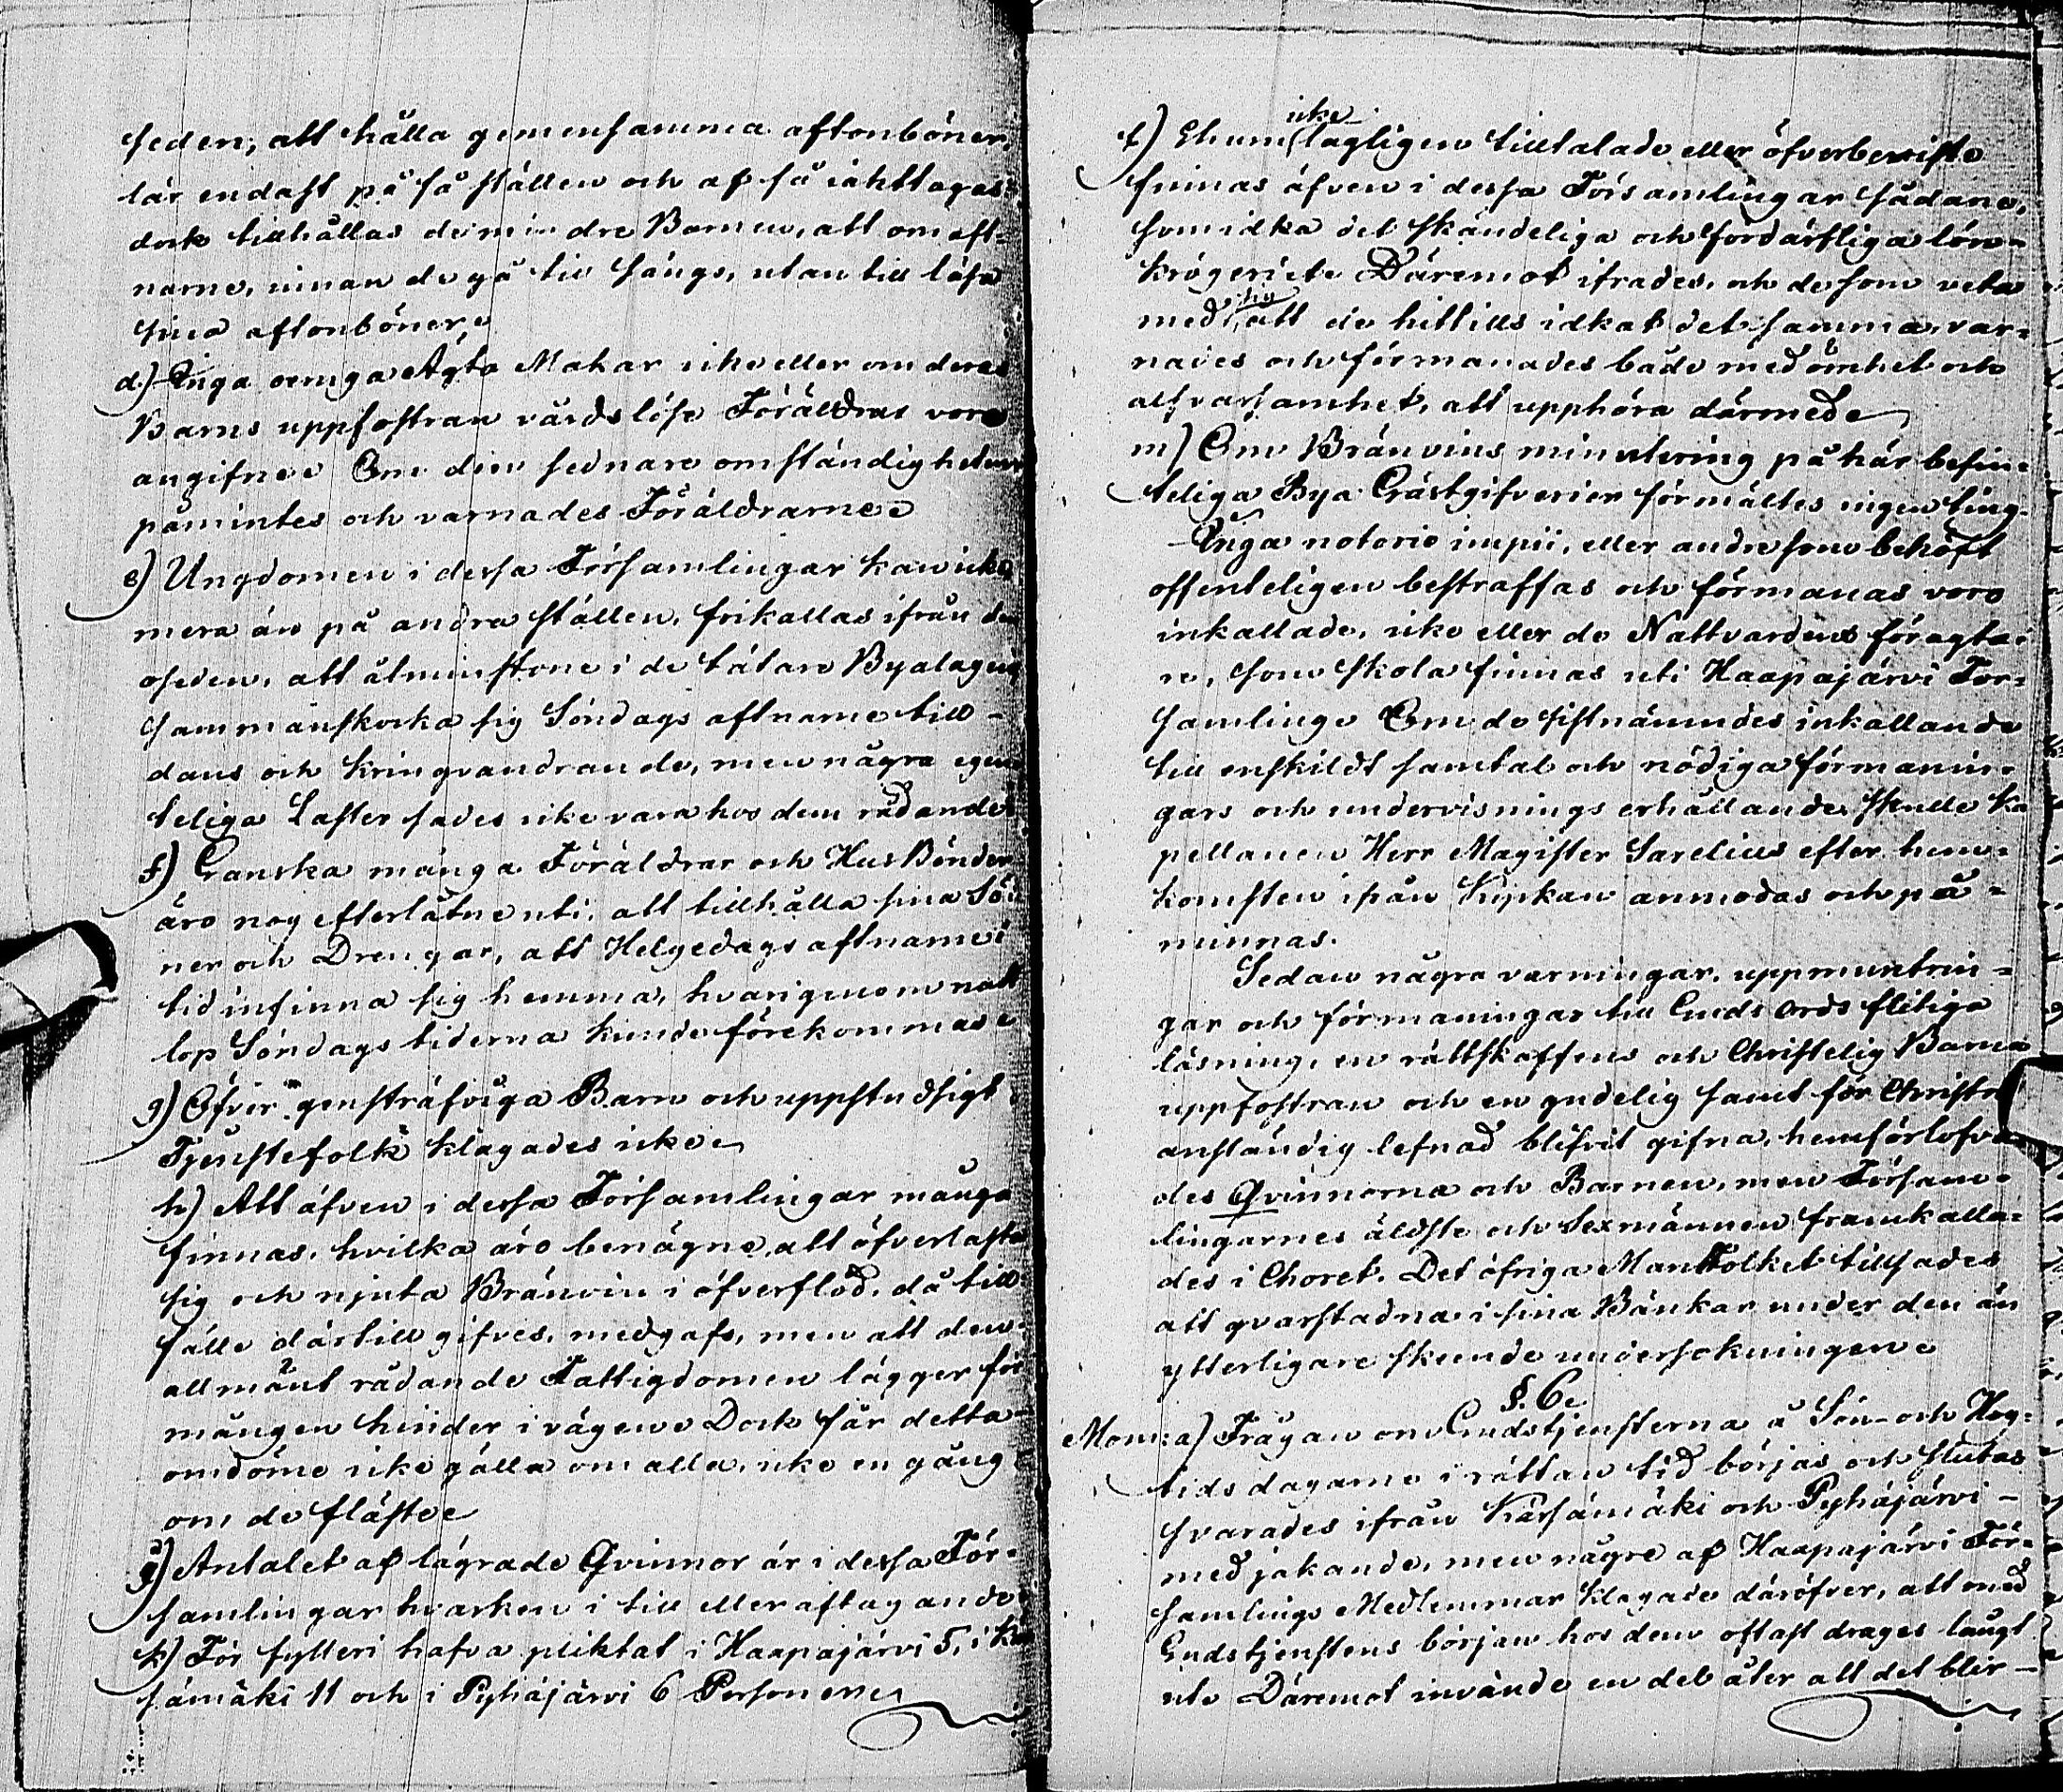 seden, att hålla gemensamma aftonböner,
lär endast på få ställen och af få iakttagas:
dock tillhållas de mindre Barnen, att om aft-
narne, innan de gå till sängs, utan till läsa
sina aftonböner.
d.) Inga oeniga Ägta Makar icke eller om deras
Barns uppfostran vårdslöse Föräldrar voro
angifne. Om den sednare omständigheten
påmintes och varnades Föräldrarne.
e) Ungdomen i dessa Församlingar kan icke
mera än på andra ställen, frikallas ifrån den
oseden, att åtminstone i de tätare Byalagen
sammanskocka sig Söndags aftnarne till -
dans och kringvandrande, men några egen-
teliga Laster sades icke vara hos dem rådande
f) Ganska många Föräldrar och Husbönder
äro nog efterlåtne uti, att tillhålla sina Sö-
ner och Drengar, att Helgedags aftnarne i
tid infinna sig hemma, hvarigenom natt
lop Söndags tiderna kunde förekommas.
g) Öfver gensträfviga Barn och uppstudsigt
Tjenstefolk klagades icke.
h) Att äfven i dessa Församlingar många
finnas, hvilka äro benägne, att öfverlasta
sig och njuta Bränvin i öfverflöd, då till-
fälle därtill gifves, medgafs, men att den
allmänt rådande Fattigdomen lägger för
mången hinder i vägen. Dock får detta
omdöme icke gälla om alla, icke en gång
om de fläste.
Antalet af lägrade Qvinnor är i dessa För-
samlingar hvarken i till eller aftagande.
k) För fylleri hafva pliktat i Haapajärvi 5, i Kär
sämäki 11 och i Pyhäjärvi 6 Personer.
icke
Ehuru lagligen tilltalade eller öfverbeviste
finnas äfven i dessa Församlingar sådane,
som idka det skändeliga och fordärfliga lön-
krögeriet. Däremot ifrades, och de som veta
sig
med att de hittills idkat det samma, var-
nades och förmanades både med ömhet och
alfvarsamhet, att upphöra därmed.
m) Om Bränvins minutering på här befin-
teliga Bya Gästgifverier förmältes ingen ting.
Inga notorie impii, eller andre som behöft
offenteligen bestraffas och förmanas voro
inkallade, icke eller de Nattvardens föragta-
re, som skola finnas uti Haapajärvi För-
samling. Om de sistnämndes inkallande
till enskildt samtal och nödiga förmanin-
gars och undervisnings erhållande, skulle Ka
pellanen Herr Magister Sarelius efter hem-
komsten ifrån Kyrkan anmodas och på -
minnas.
Sedan några varningar, uppmuntrin -
gar och förmaningar till Guds Ords flitiga
läsning, en rättskaffens och Christelig Barna
uppfostran och en gudelig samt för Christna
anständig lefnad blifvit gifna, hemförlofva-
des Qvinnorna och Barnen, men Försam-
lingarnes äldste och Sexmännen framkalla-
des i Choret. Det öfriga Manfolket tillsades
att qvarstadna i sina Bänkar under den än
ytterligare skeende undersökningen.
§. 6.
Mom: a) Frågan om Gudstjensterna å Sön- och Hög-
tidsdagarne i rättan tid börjas och slutas
svarades ifrån Kärsämäki och Pyhäjärvi -
med jakande, men någre af Haapajärvi För-
samlings Medlemmar klagade däröfver, att med
Gudstjenstens början hos dem oftast drages långt
ut. Däremot invände en del åter att det blir -